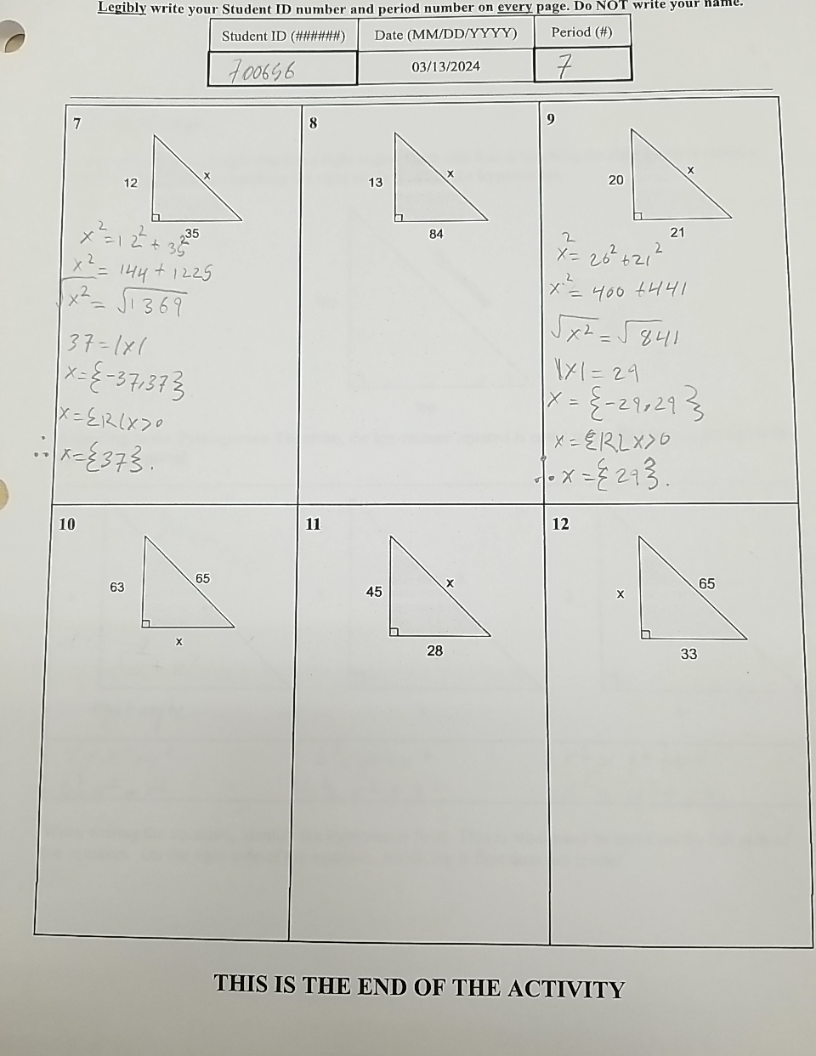 Legibly write your Student ID number and period number on every page. Do NOT write your name.
Student ID (######) Date (MM/DD/YYYY) Period (#)
700656 03/13/2024 7
7
12
x
35
x²=12²+35²
x²=144+1225
√x²=√1369
37=|x|
x={-37,37}
x={ℝ|x>0
∴ x={37}.
8
13
x
84
9
20
x
21
x²=20²+21²
x²=400+441
√x²=√841
|x|=29
x={-29,29}
x={ℝ|x>0
∴ x={29}.
10
63
65
x
11
45
x
28
12
x
65
33
THIS IS THE END OF THE ACTIVITY